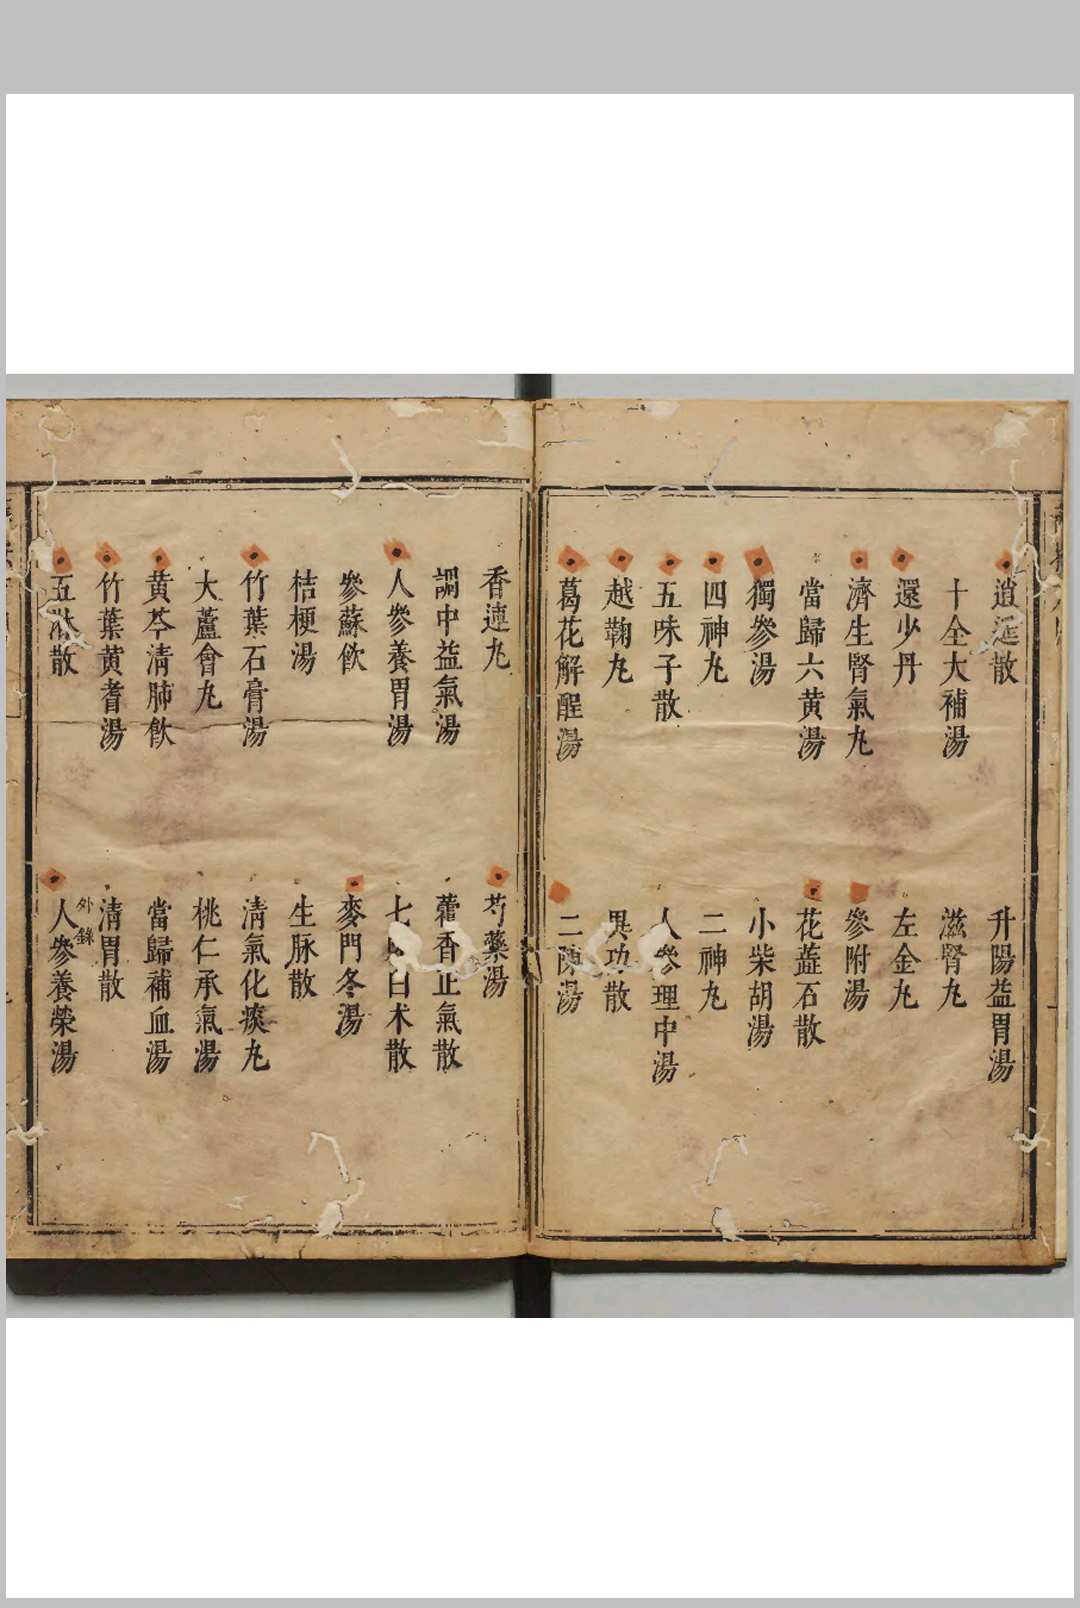 逍遥散
升陽益胃湯
十全大補湯
滋腎丸
還少丹
左金丸
濟生腎氣丸
參附湯
當歸六黄湯
花蕋石散
獨參湯
小柴胡湯
四神丸
二神丸
五味子散
人參理中湯
越鞠丸
異功散
葛花解酲湯
二陳湯
香連丸
芍藥湯
調中益氣湯
藿香正氣散
人參養胃湯
七 白术散
參蘇飲
麥門冬湯
桔梗湯
生脉散
竹葉石膏湯
清氣化痰丸
大蘆會丸
桃仁承氣湯
黄芩清肺飲
當歸補血湯
竹葉黄耆湯
清胃散
五淋散
外錄
人參養榮湯